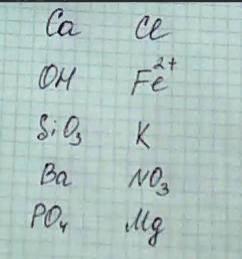 Ca Cl
OH Fe²⁺
SiO₃ K
Ba NO₃
PO₄ Mg